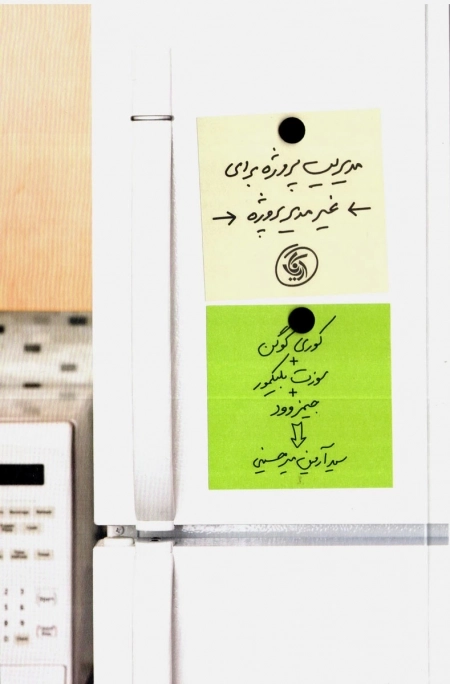 مدیریت پروژه برای
→ غیر مدیر پروژه ←
آریانا قلم
کوری کوگن
+
سوزت بلیکمور
+
جیمز وود
⇩
سید آرمین میرحسینی